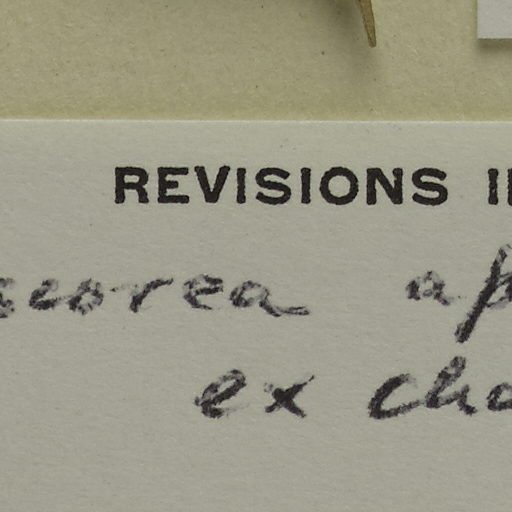 REVISIONS I
corea ap
ex cha